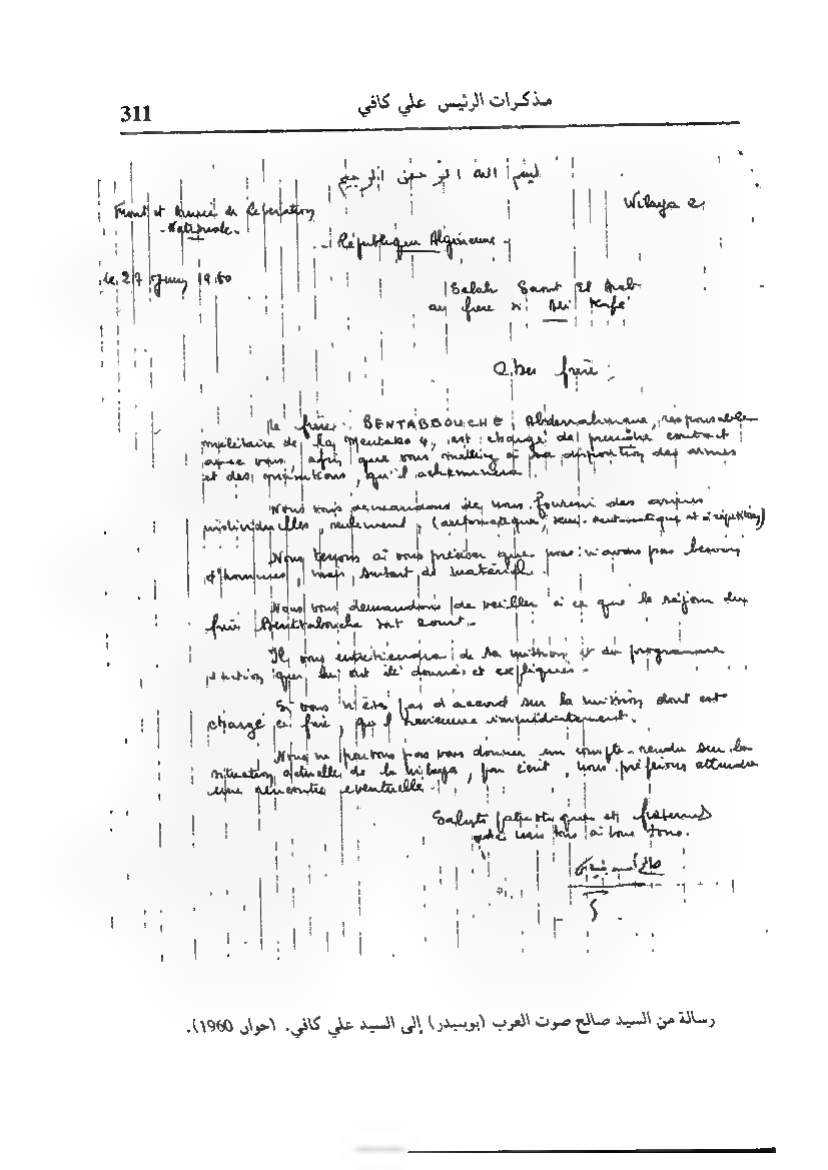 311
مذكرات الرئيس علي كافي
بسم الله الرحمن الرحيم
Front et Armée de Libération
Nationale.
Wilaya 2
République Algérienne
le 27 Juin 1960
Salah Saout El Arab
au frère si Ali Kafi
Cher frère
Le frère BENTABBOUCHE Abderrahmane, responsable
militaire de la Mentaka 4, est chargé de première contact
avec vous, afin que vous mettiez à sa disposition des armes
et des munitions, qu'il acheminera.
Nous vous demandons de nous fournir des armes
individuelles, seulement, (automatique, semi-automatique et à répétition)
Nous tenons à vous préciser que nous n'avons pas besoin
d'hommes, mais surtout de matériel.
Nous vous demandons de veiller à ce que le séjour du
frère Bentabbouche soit court.
Il vous entretiendra de sa mission et du programme
d'action qui lui ont été donnés et expliqués.
Si vous n'êtes pas d'accord sur la mission dont est
chargé ce frère, qu'il revienne immédiatement.
Nous ne pouvons pas vous donner un compte-rendu sur la
situation actuelle de la wilaya, par écrit, nous préférons attendre
une rencontre éventuelle.
Saluts patriotiques et fraternels
de nous tous à vous tous.
رسالة من السيد صالح صوت العرب (بوبنيدر) إلى السيد علي كافي. (جوان 1960).